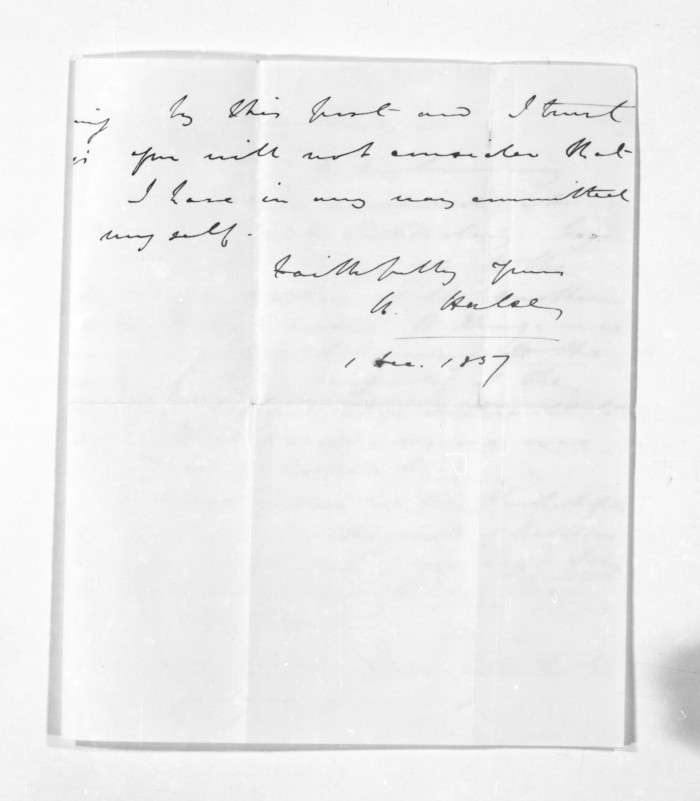 by this post and I trust
you will not consider that
I have in any way committed
myself.
Faithfully yours
H. Halse
1 Dec. 1857